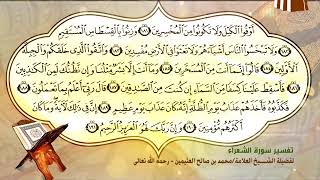 أَوْفُوا الْكَيْلَ وَلَا تَكُونُوا مِنَ الْمُخْسِرِينَ ﴿١٨١﴾ وَزِنُوا بِالْقِسْطَاسِ الْمُسْتَقِيمِ
﴿١٨٢﴾ وَلَا تَبْخَسُوا النَّاسَ أَشْيَاءَهُمْ وَلَا تَعْثَوْا فِي الْأَرْضِ مُفْسِدِينَ ﴿١٨٣﴾ وَاتَّقُوا الَّذِي خَلَقَكُمْ وَالْجِبِلَّةَ
الْأَوَّلِينَ ﴿١٨٤﴾ قَالُوا إِنَّمَا أَنْتَ مِنَ الْمُسَحَّرِينَ ﴿١٨٥﴾ وَمَا أَنْتَ إِلَّا بَشَرٌ مِثْلُنَا وَإِنْ نَظُنُّكَ لَمِنَ الْكَاذِبِينَ
﴿١٨٦﴾ فَأَسْقِطْ عَلَيْنَا كِسَفًا مِنَ السَّمَاءِ إِنْ كُنْتَ مِنَ الصَّادِقِينَ ﴿١٨٧﴾ قَالَ رَبِّي أَعْلَمُ بِمَا تَعْمَلُونَ ﴿١٨٨﴾
فَكَذَّبُوهُ فَأَخَذَهُمْ عَذَابُ يَوْمِ الظُّلَّةِ إِنَّهُ كَانَ عَذَابَ يَوْمٍ عَظِيمٍ ﴿١٨٩﴾ إِنَّ فِي ذَلِكَ لَآيَةً وَمَا كَانَ
أَكْثَرُهُمْ مُؤْمِنِينَ ﴿١٩٠﴾ وَإِنَّ رَبَّكَ لَهُوَ الْعَزِيزُ الرَّحِيمُ ﴿١٩١﴾
تفسير سورة الشعراء
لفضيلة الشيخ العلامة/محمد بن صالح العثيمين - رحمه الله تعالى